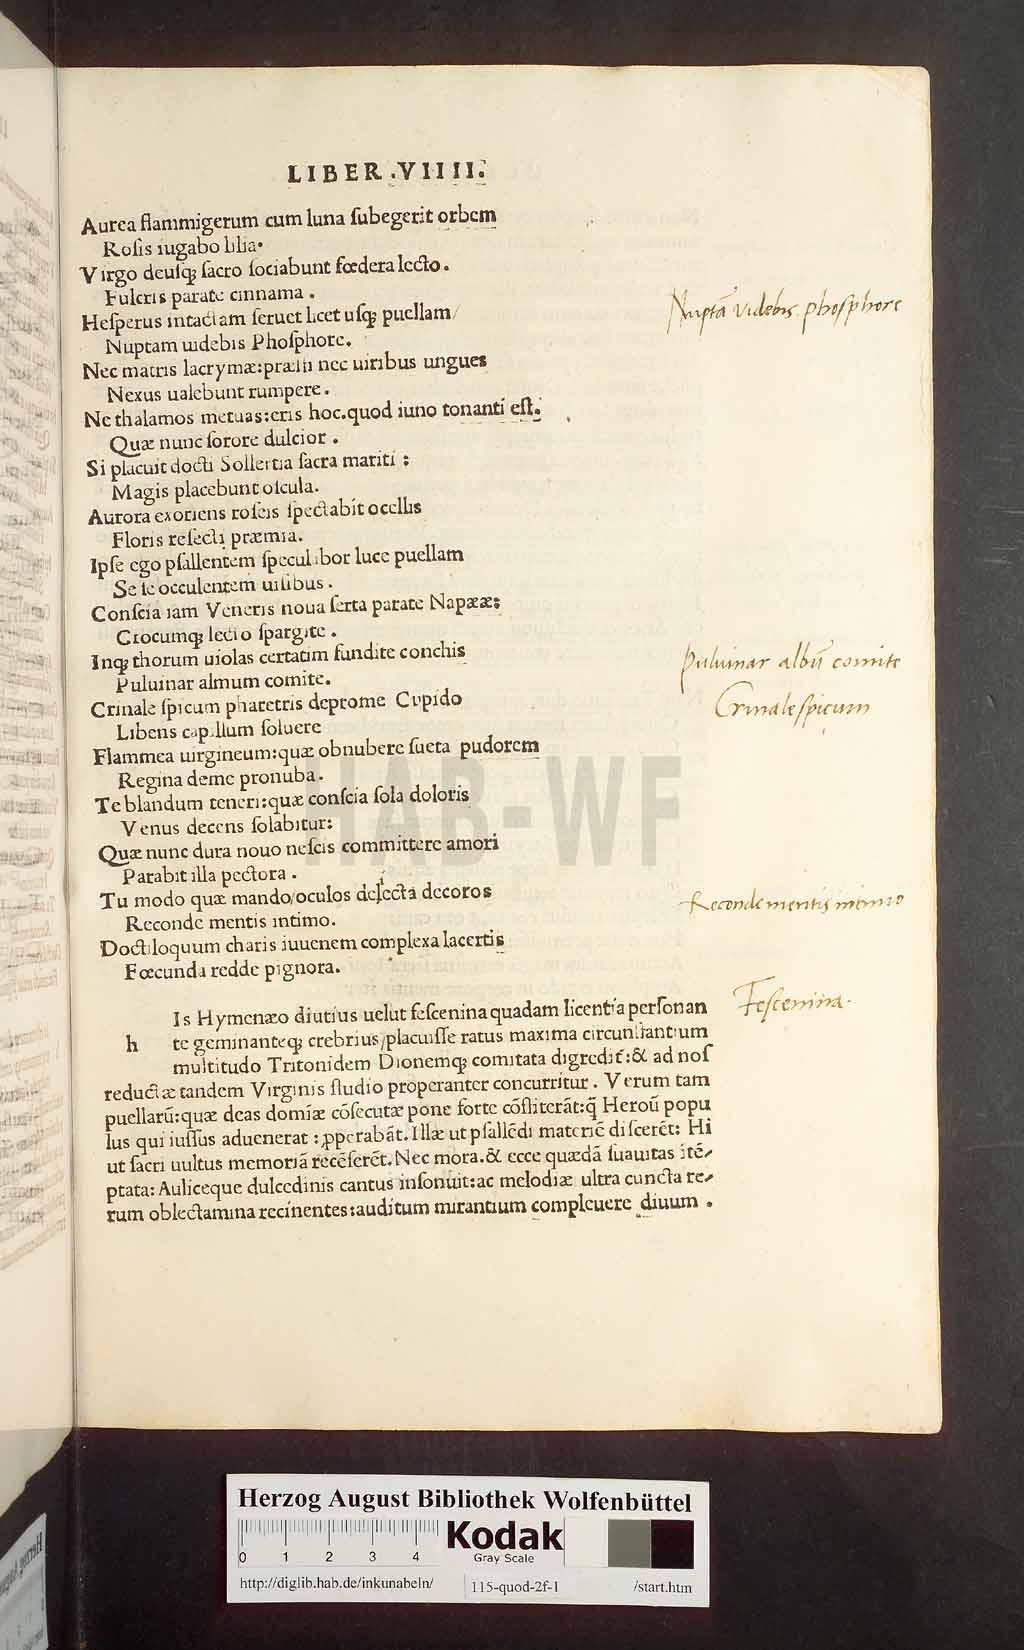 LIBER .VIIII.
Aurea flammigerum cum luna ſubegerit orbem
Roſis iugabo lilia.
Virgo deuſq; ſacro ſociabunt fœdera lecto.
Fulcris parate cinnama.
Heſperus intactam ſeruet licet uſq; puellam/
Nuptam uidebis Phoſphore.
Nec matris lacrymæ: præſii nec uiribus ungues
Nexus ualebunt rumpere.
Ne thalamos metuas: eris hoc. quod iuno tonanti eſt.
Quæ nunc ſorore dulcior.
Si placuit docti Sollertia ſacra mariti:
Magis placebunt oſcula.
Aurora exoriens roſeis ſpectabit ocellis
Floris reſecti præmia.
Ipſe ego pſallentem ſpeculabor luce puellam
Se ſe occulentem uilibus.
Conſcia iam Veneris noua ſerta parate Napææ:
Crocumq; lecto ſpargite.
Inq; thorum uiolas certatim fundite conchis
Puluinar almum comite.
Crinale ſpicum pharetris deprome Cupido
Libens capillum ſoluere
Flammea uirgineum: quæ obnubere ſueta pudorem
Regina deme pronuba.
Te blandum teneri: quæ conſcia ſola doloris
Venus decens ſolabitur:
Quæ nunc dura nouo neſcis committere amori
Parabit illa pectora.
Tu modo quæ mando/oculos deiecta decoros
Reconde mentis intimo.
Doctiloquum charis iuuenem complexa lacertis
Fœcunda redde pignora.
Is Hymenæo diutius uelut feſcenina quadam licentia perſonan
h te geminanteq; crebrius/placuiſſe ratus maxima circunſtantium
multitudo Tritonidem Dionemq; comitata digredit̃: & ad noſ
reductæ tandem Virginis ſtudio properanter concurritur. Verum tam
puellarũ: quæ deas domíæ cõſecutæ pone forte cõſtiterãt: q̃ Heroũ popu
lus qui iuſſus aduenerat: ꝓperabãt. Illæ ut pſallẽdi materiẽ diſcerẽt: Hi
ut ſacri uultus memoriã recẽſerẽt. Nec mora. & ecce quædã ſuauitas itẽ-
ptata: Auliceque dulcedinis cantus inſonuit: ac melodiæ ultra cuncta re-
rum oblectamina recinentes: auditum mirantium compleuere diuum.
Nuptã videbis phoſphore
Puluinar albũ comite
Crinale ſpicum
Reconde mentis intimo
Feſcenina.
HAB-WF
Herzog August Bibliothek Wolfenbüttel
0 1 2 3 4
Kodak
Gray Scale
http://diglib.hab.de/inkunabeln/
115-quod-2f-1
/start.htm